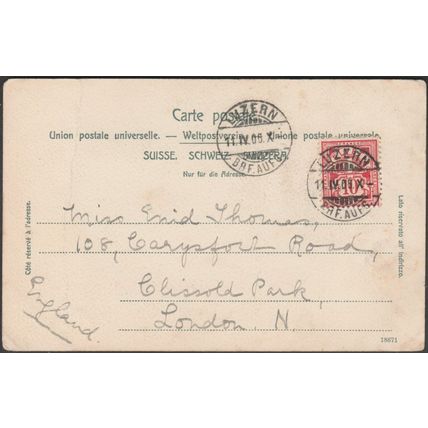 Carte postale
Union postale universelle. — Weltpostverein. — Unione postale universale
SUISSE. SCHWEIZ. SVIZZERA.
Nur für die Adresse.
LUZERN
11.IV.06.X-
BRF.AUFG.
LUZERN
11.IV.06.X-
BRF.AUFG.
10
Côté réservé à l'adresse.
Lato riservato all' indirizzo.
Miss Enid Thomas,
108, Carysfort Road,
Clissold Park,
London, N.
England.
18671